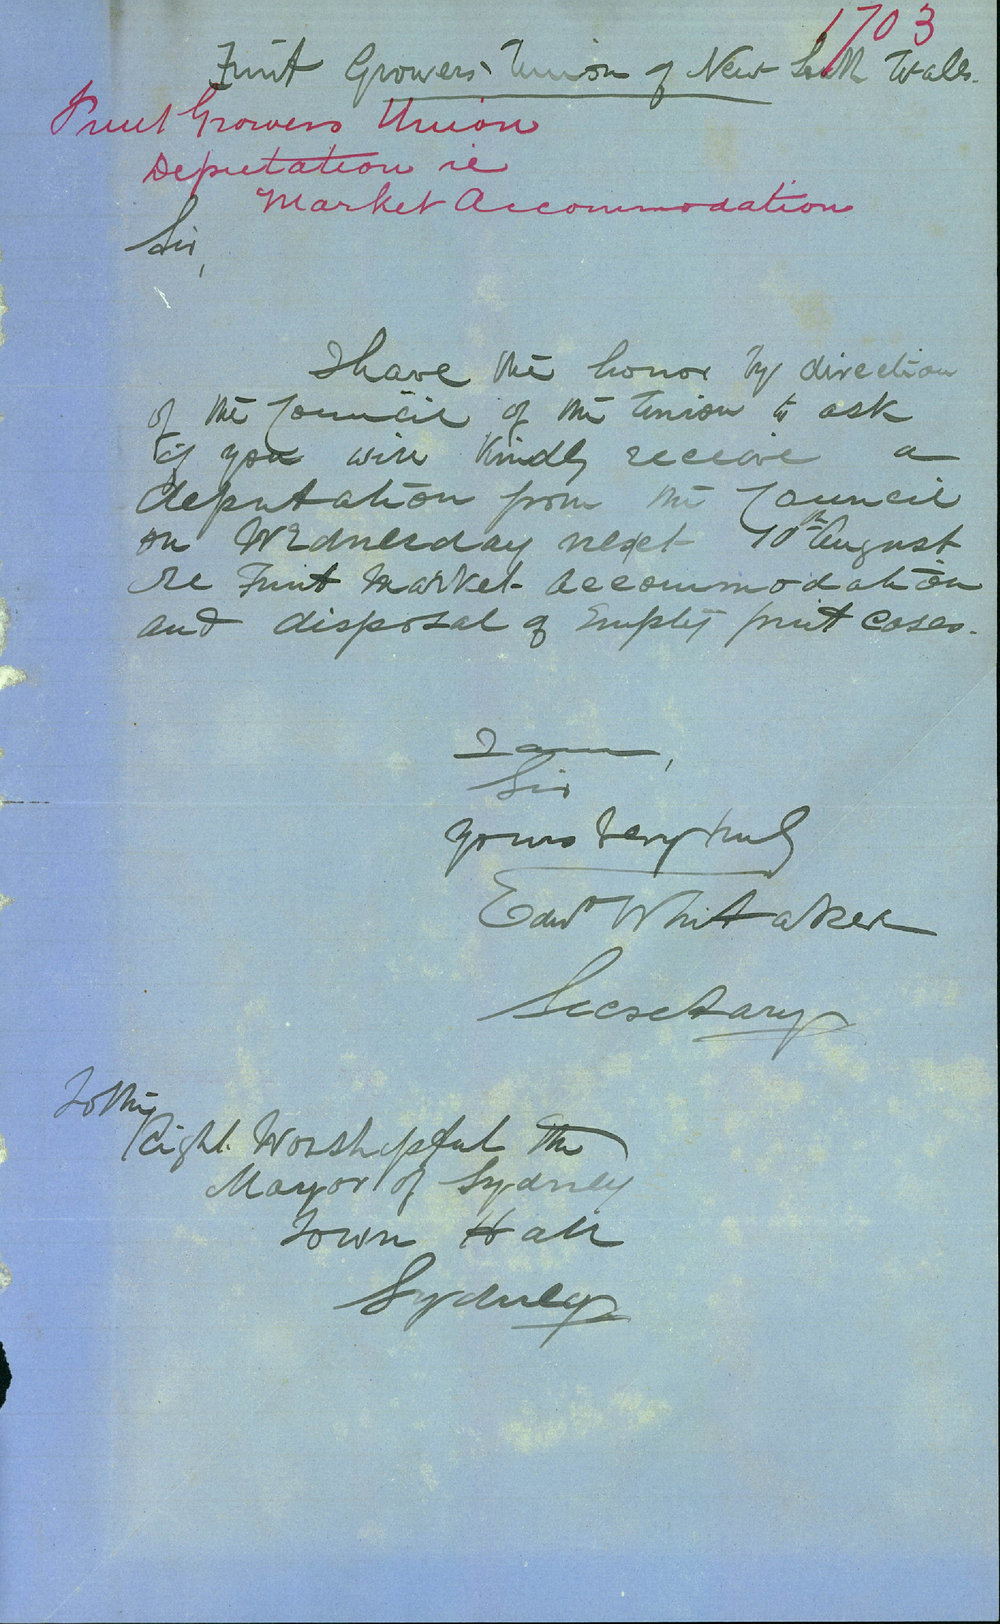 1703
Fruit Growers Union of New South Wales.
Fruit Growers Union
Deputation re
Market Accommodation
Sir,
I have the honor by direction
of the Council of the Union to ask
if you will kindly receive a
deputation from the Council
on Wednesday next 10th August
re Fruit Market accommodation
and disposal of Empty fruit cases.
I am,
Sir
yours very truly
Edwd Whittaker
Secretary
To the
Right Worshipful The
Mayor of Sydney
Town Hall
Sydney